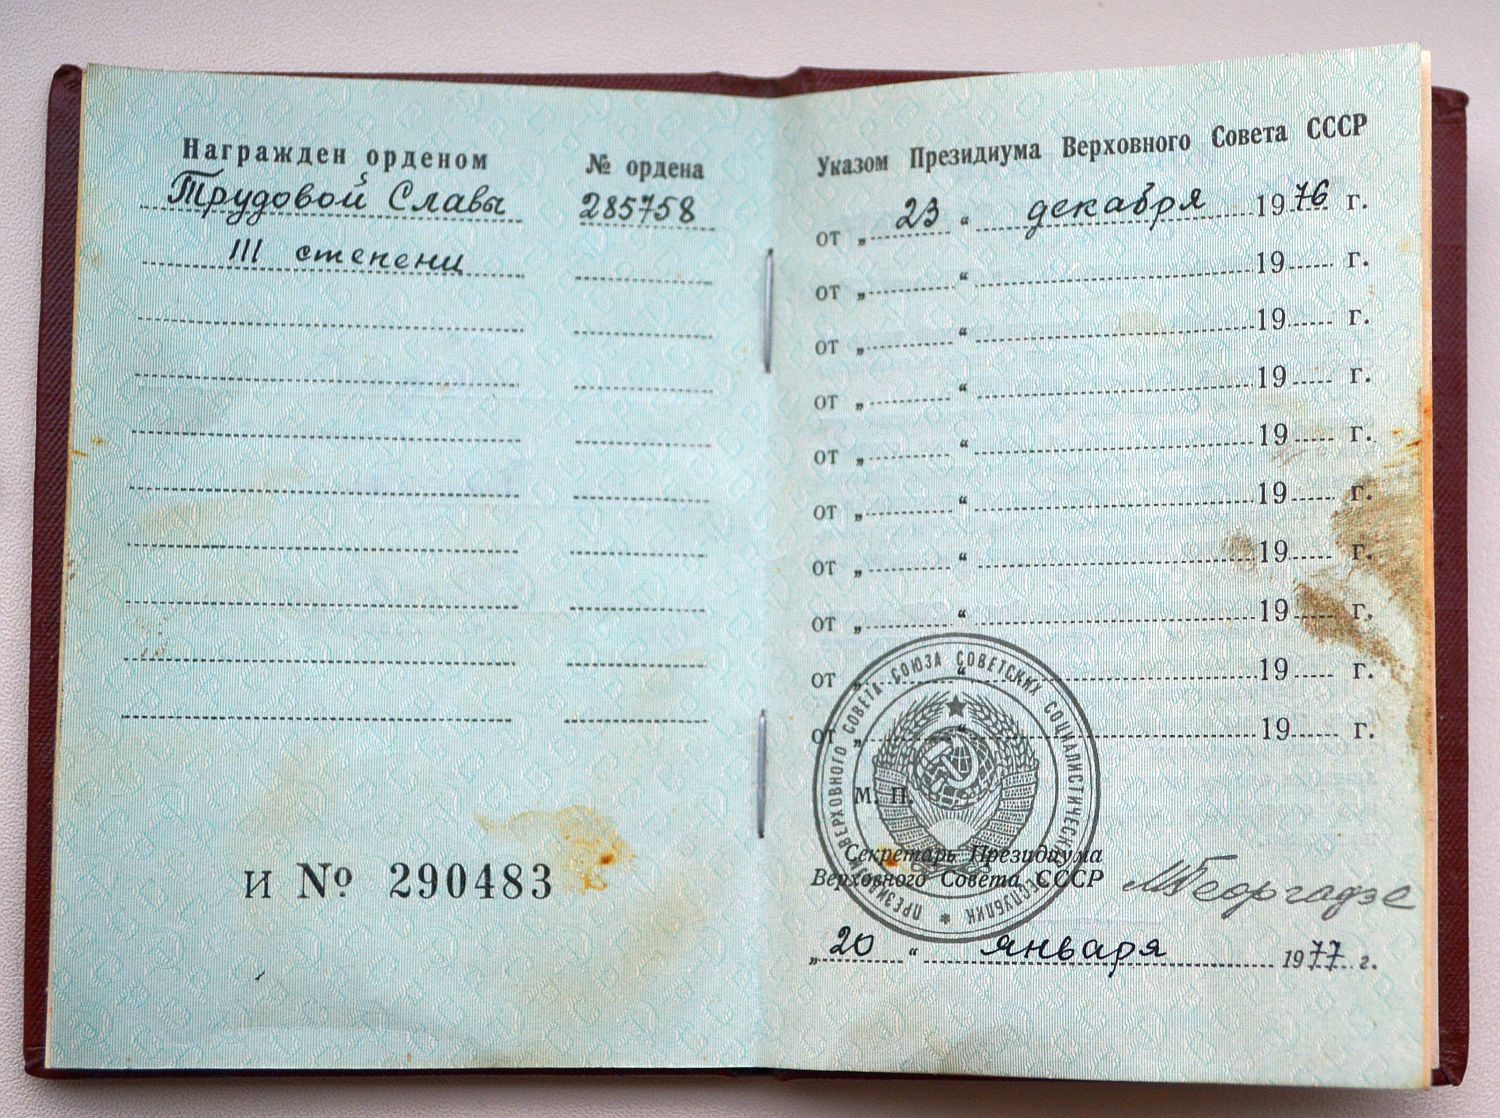 Награжден орденом
Трудовой Славы
III степени
№ ордена
285758
И № 290483
Указом Президиума Верховного Совета СССР
от „ 23 “ декабря 1976 г.
от „ “ 19 г.
от „ “ 19 г.
от „ “ 19 г.
от „ “ 19 г.
от „ “ 19 г.
от „ “ 19 г.
от „ “ 19 г.
от „ “ 19 г.
от „ “ 19 г.
ПРЕЗИДИУМ ВЕРХОВНОГО СОВЕТА СОЮЗА СОВЕТСКИХ СОЦИАЛИСТИЧЕСКИХ РЕСПУБЛИК
М. П.
Секретарь Президиума
Верховного Совета СССР МГеоргадзе
„ 20 “ января 1977 г.